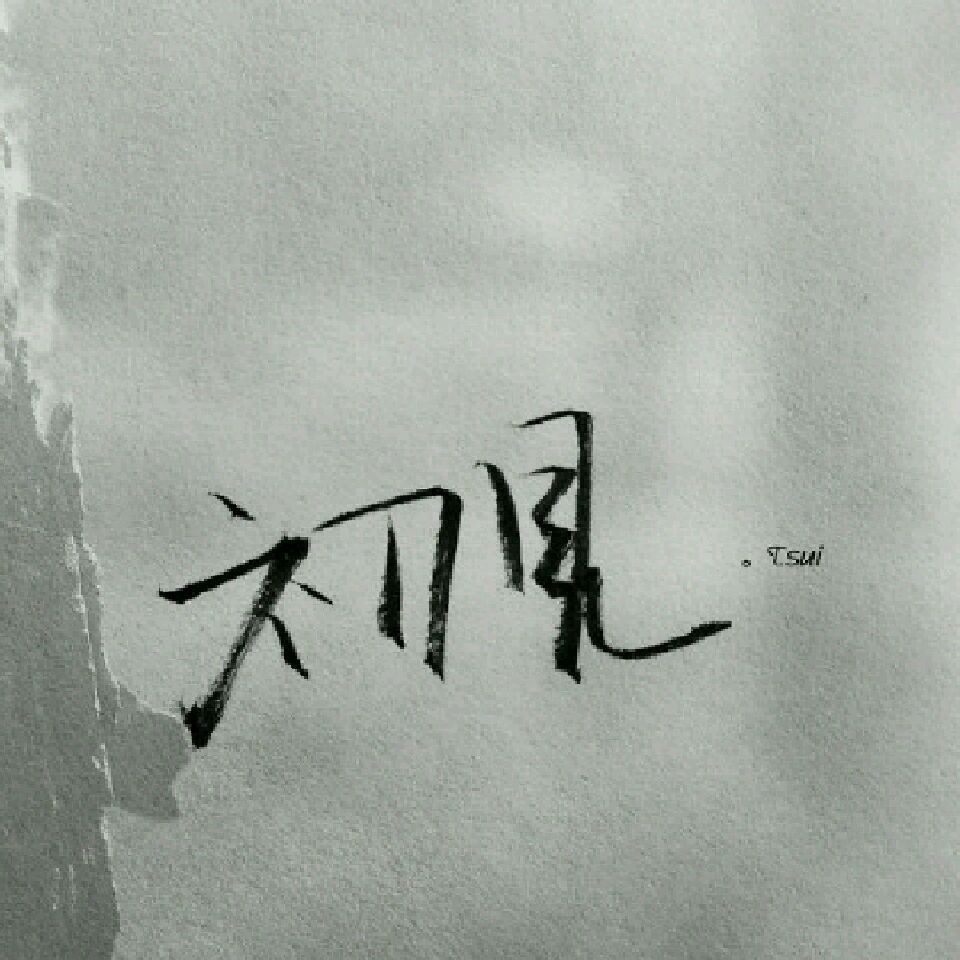 初見
。Tsui